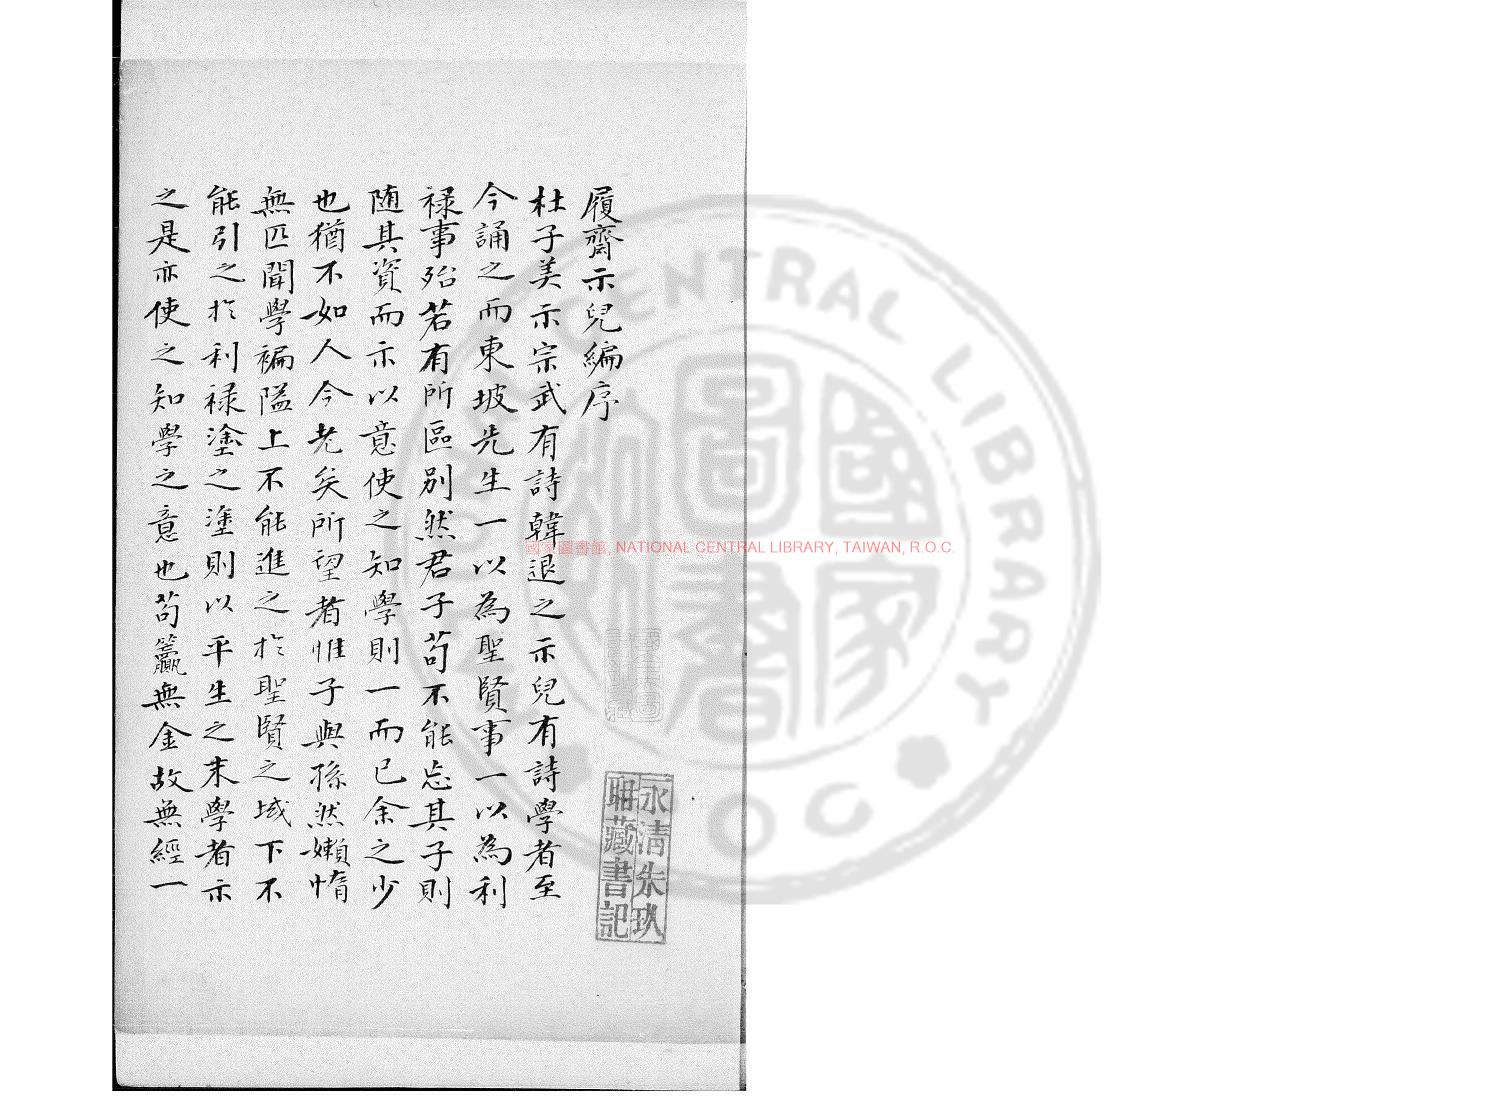 履齋示兒編序
杜子美示宗武有詩韓退之示兒有詩學者至
今誦之而東坡先生一以為聖賢事一以為利
祿事殆若有所區別然君子苟不能忘其子則
隨其資而示以意使之知學則一而已余之少
也猶不如人今老矣所望者惟子與孫然嬾惰
無匹聞學褊隘上不能進之於聖賢之域下不
能引之於利祿塗之塗則以平生之末學者示
之是亦使之知學之意也苟籯無金故無經一
永清朱玖
聃藏書記
國家圖書館, NATIONAL CENTRAL LIBRARY, TAIWAN, R.O.C.
國家圖書
NATIONAL CENTRAL LIBRARY